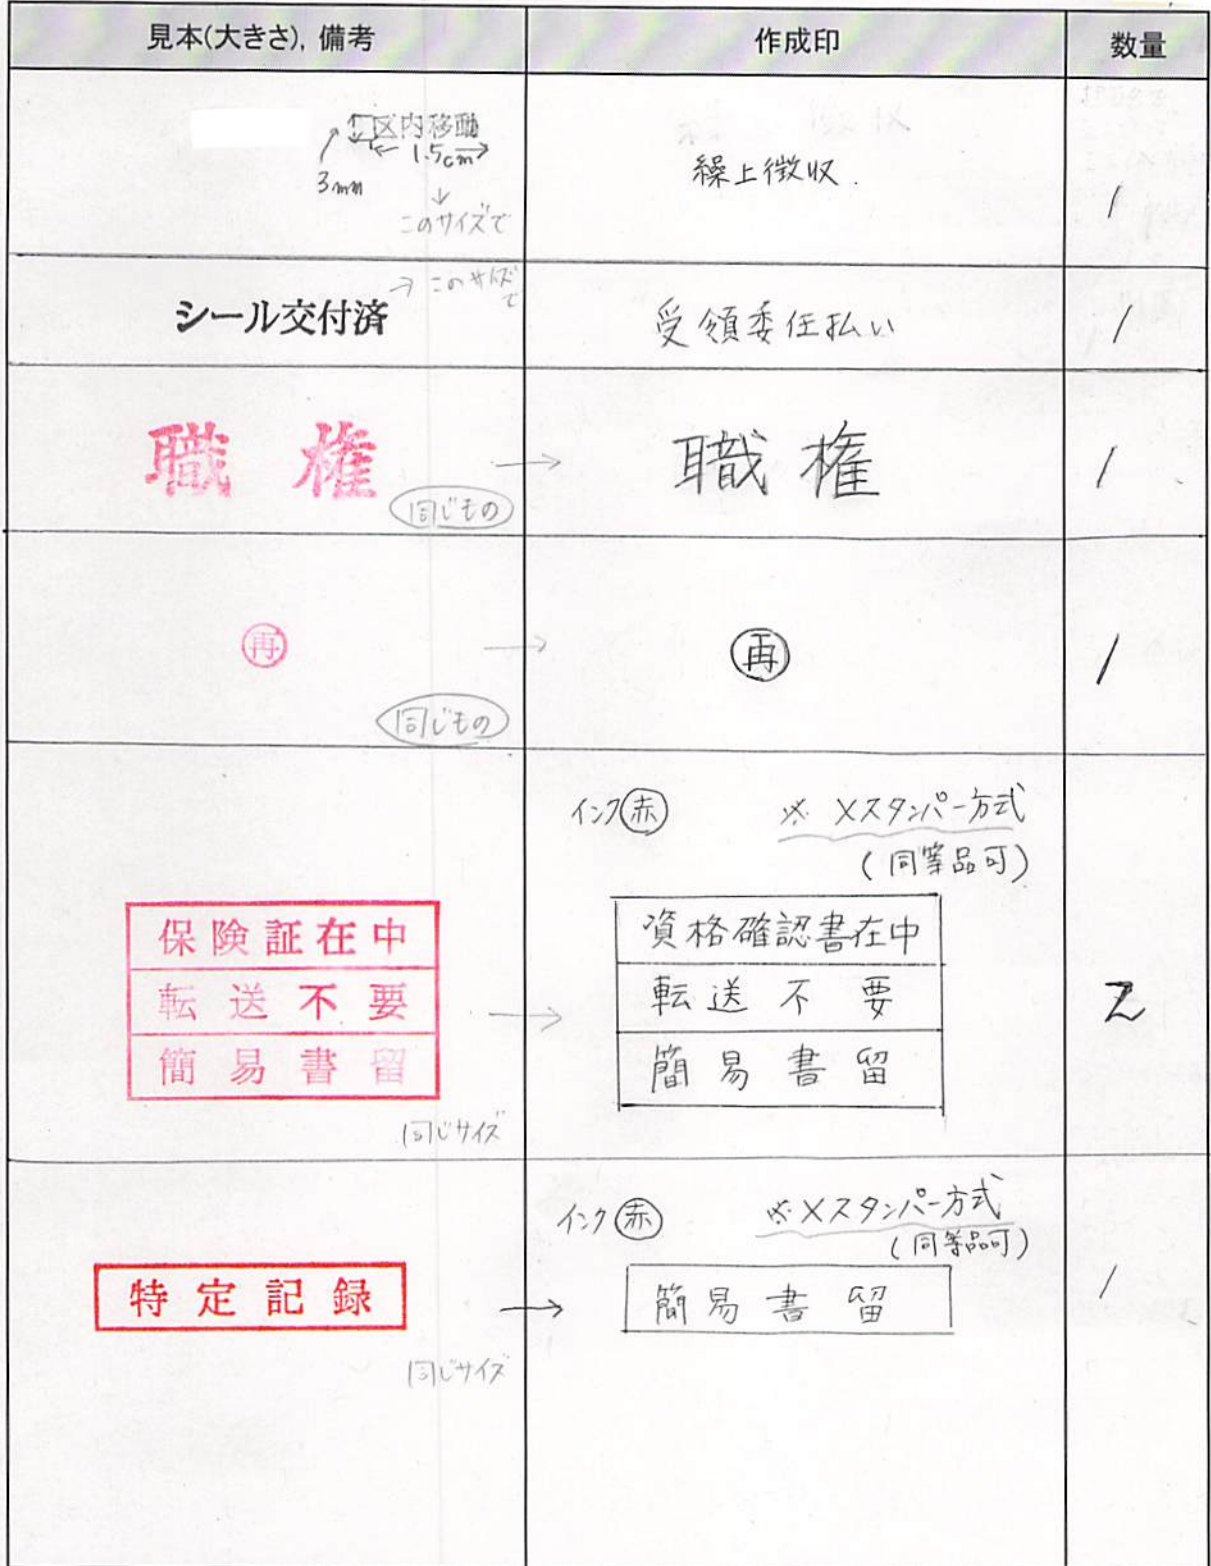 見本(大きさ), 備考
作成印
数量
区内移動
1.5cm
3mm
このサイズで
繰上徴収.
1
シール交付済
このサイズで
受領委任払い
1
職 権
同じもの
職 権
1
再
同じもの
再
1
保険証在中
転送不要
簡易書留
同じサイズ
インク赤
※ Xスタンパー方式
(同等品可)
資格確認書在中
転送不要
簡易書留
2
特定記録
同じサイズ
インク赤
※Xスタンパー方式
(同等品可)
簡易書留
1